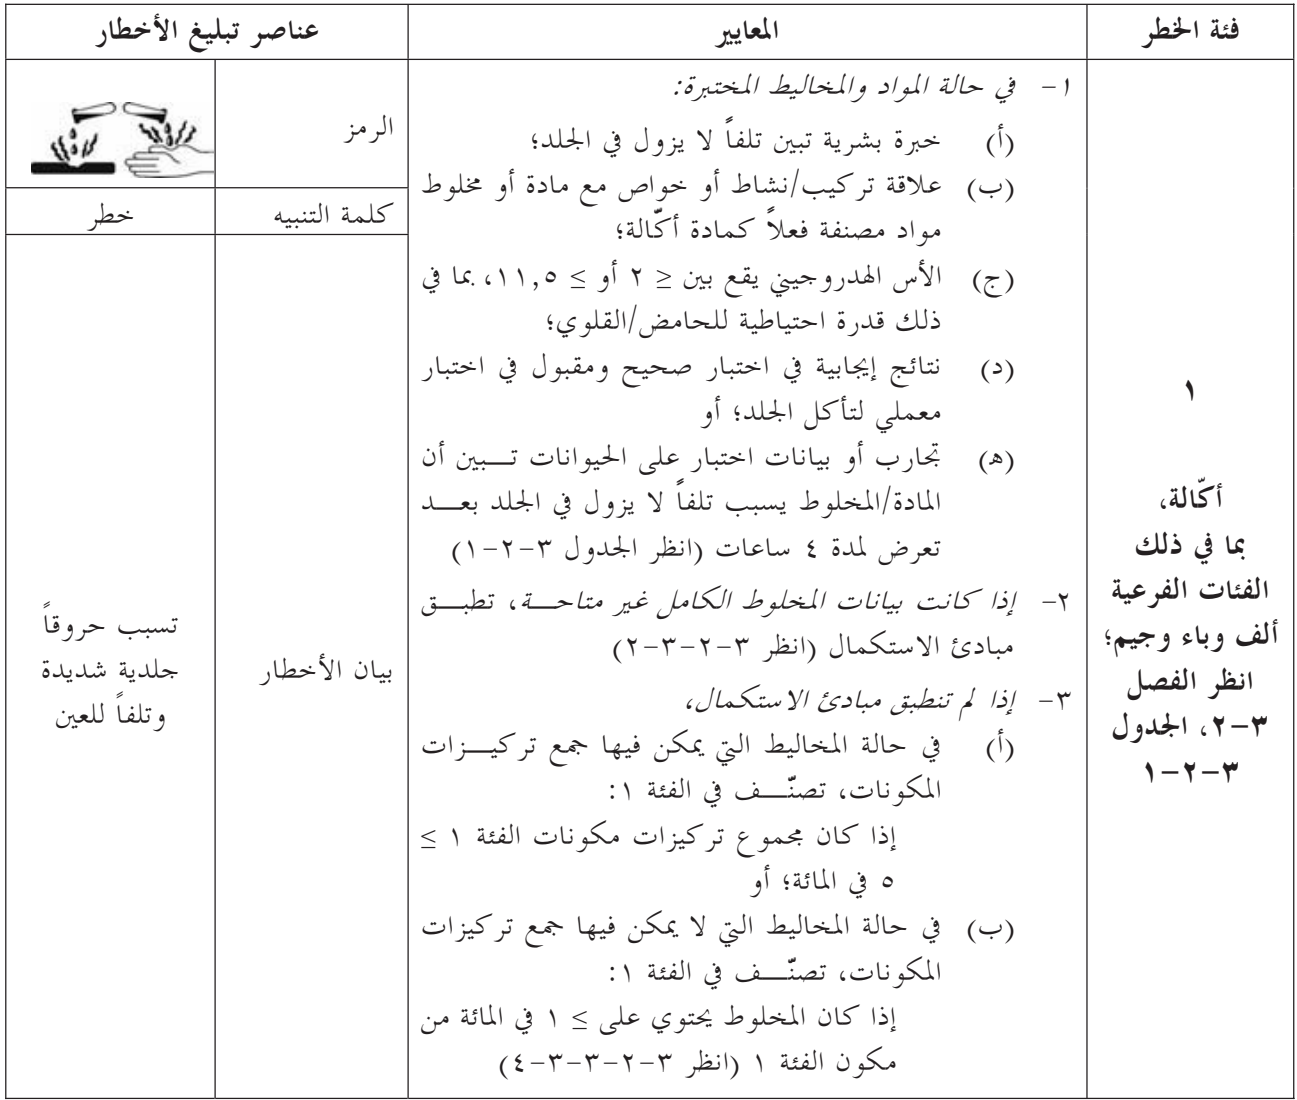 فئة الخطر
المعايير
عناصر تبليغ الأخطار
١
أكّالة،
بما في ذلك
الفئات الفرعية
ألف وباء وجيم؛
انظر الفصل
٣-٢، الجدول
٣-٢-١
١- في حالة المواد والمخاليط المختبرة:
(أ) خبرة بشرية تبين تلفاً لا يزول في الجلد؛
(ب) علاقة تركيب/نشاط أو خواص مع مادة أو مخلوط
مواد مصنفة فعلاً كمادة أكّالة؛
(ج) الأس الهدروجيني يقع بين ≤ ٢ أو ≥ ١١,٥، بما في
ذلك قدرة احتياطية للحامض/القلوي؛
(د) نتائج إيجابية في اختبار صحيح ومقبول في اختبار
معملي لتأكل الجلد؛ أو
(ه) تجارب أو بيانات اختبار على الحيوانات تــبين أن
المادة/المخلوط يسبب تلفاً لا يزول في الجلد بعــد
تعرض لمدة ٤ ساعات (انظر الجدول ٣-٢-١)
٢- إذا كانت بيانات المخلوط الكامل غير متاحــة، تطبــق
مبادئ الاستكمال (انظر ٣-٢-٣-٢)
٣- إذا لم تنطبق مبادئ الاستكمال،
(أ) في حالة المخاليط التي يمكن فيها جمع تركيــزات
المكونات، تصنّــف في الفئة ١:
إذا كان مجموع تركيزات مكونات الفئة ١ ≥
٥ في المائة؛ أو
(ب) في حالة المخاليط التي لا يمكن فيها جمع تركيزات
المكونات، تصنّــف في الفئة ١:
إذا كان المخلوط يحتوي على ≥ ١ في المائة من
مكون الفئة ١ (انظر ٣-٢-٣-٣-٤)
الرمز
كلمة التنبيه
خطر
بيان الأخطار
تسبب حروقاً
جلدية شديدة
وتلفاً للعين